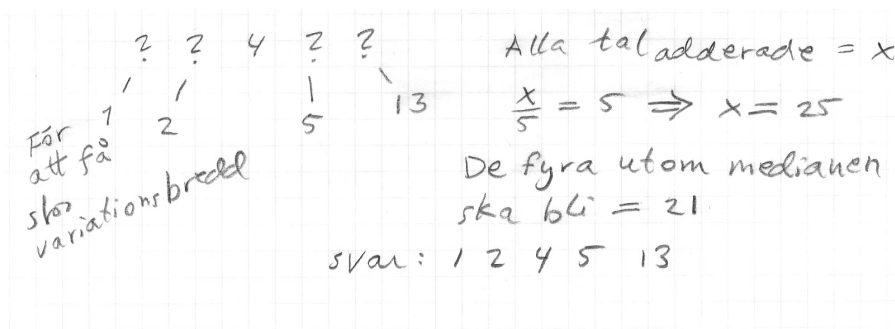 ? ? 4 ? ?
1 2 5 13
För att få stor variationsbredd
Alla tal adderade = x
x/5 = 5 ⇒ x = 25
De fyra utom medianen
ska bli = 21
svar: 1 2 4 5 13